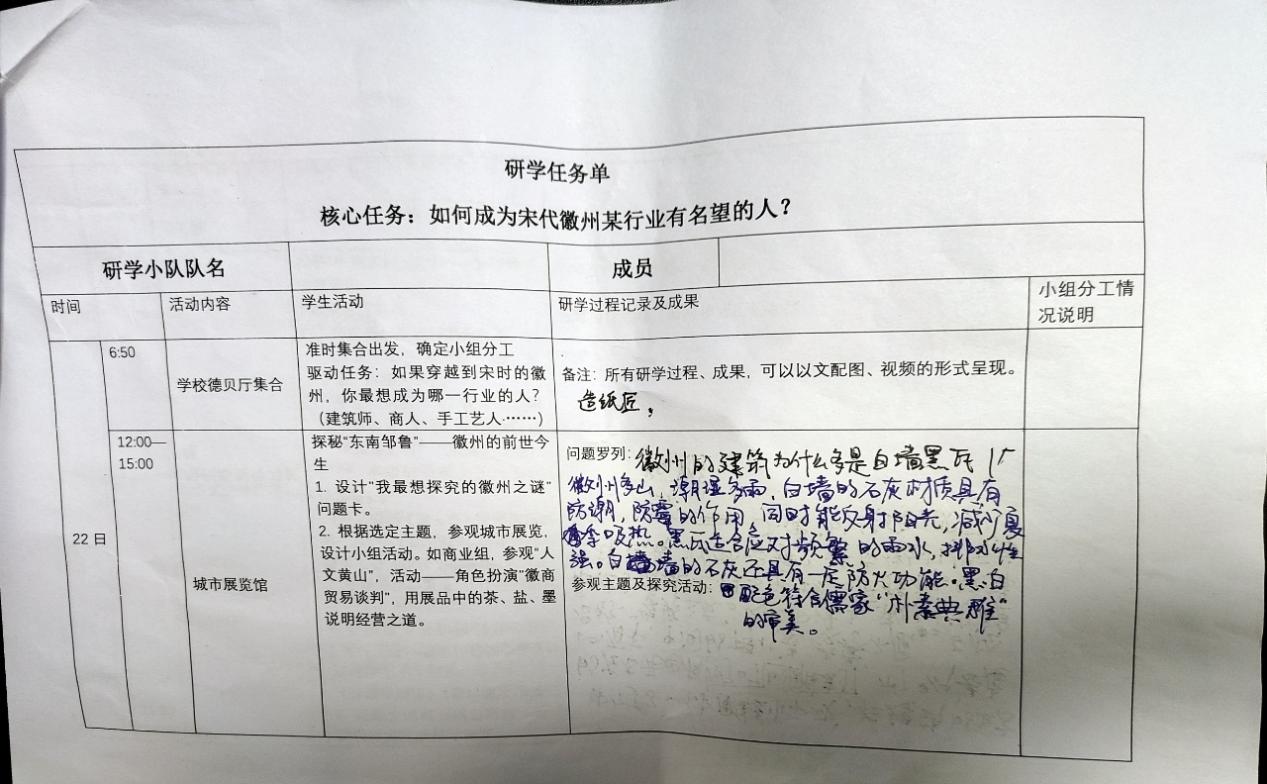 研学任务单
核心任务：如何成为宋代徽州某行业有名望的人？
研学小队队名
成员
时间
活动内容
学生活动
研学过程记录及成果
小组分工情
况说明
22日
6:50
学校德贝厅集合
准时集合出发，确定小组分工
驱动任务：如果穿越到宋时的徽
州，你最想成为哪一行业的人？
（建筑师、商人、手工艺人……）
备注：所有研学过程、成果，可以以文配图、视频的形式呈现。
造纸匠，
12:00—
15:00
城市展览馆
探秘“东南邹鲁”——徽州的前世今
生
1. 设计“我最想探究的徽州之谜”
问题卡。
2. 根据选定主题，参观城市展览，
设计小组活动。如商业组，参观“人
文黄山”，活动——角色扮演“徽商
贸易谈判”，用展品中的茶、盐、墨
说明经营之道。
问题罗列：徽州的建筑为什么多是白墙黑瓦
徽州多山，潮湿多雨，白墙的石灰材质具有
防潮，防霉的作用，同时能反射阳光，减少夏
季吸热。黑瓦适合应对频繁的雨水，排水性
强。白墙的石灰还具有一定防火功能。黑白
参观主题及探究活动：配色符合儒家“朴素典雅”
的审美。